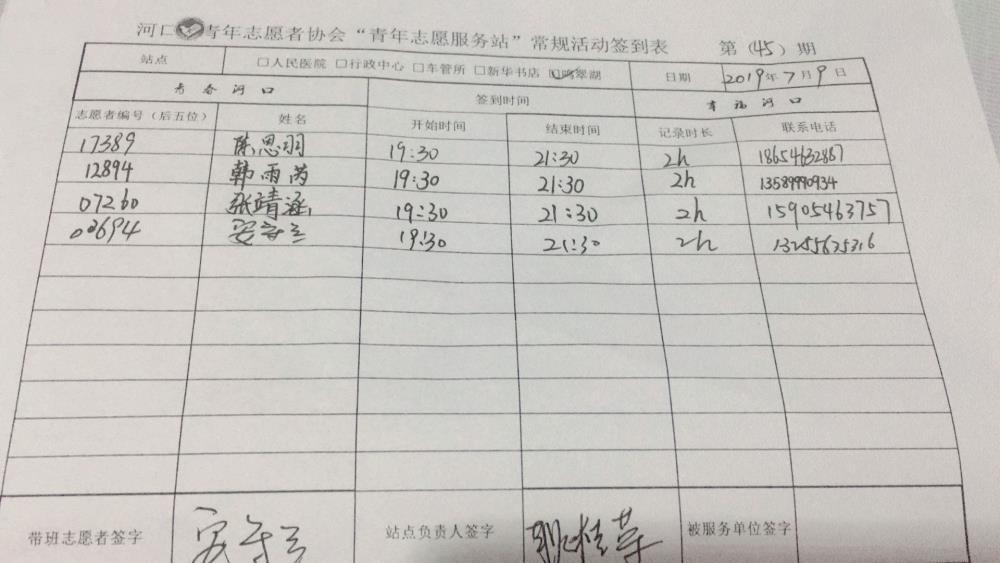 河口青年志愿者协会“青年志愿服务站”常规活动签到表 第(45)期
站点 □人民医院 □行政中心 □车管所 □新华书店 ☑鸣翠湖 日期 2019年7月9日
青春河口 签到时间 幸福河口
志愿者编号(后五位) 姓名 开始时间 结束时间 记录时长 联系电话
17389 陈思羽 19:30 21:30 2h 18654632887
12894 韩雨芮 19:30 21:30 2h 13589990934
07260 张靖涵 19:30 21:30 2h 15905463757
00694 19:30 21:30 2h 13255625316
带班志愿者签字 站点负责人签字 被服务单位签字